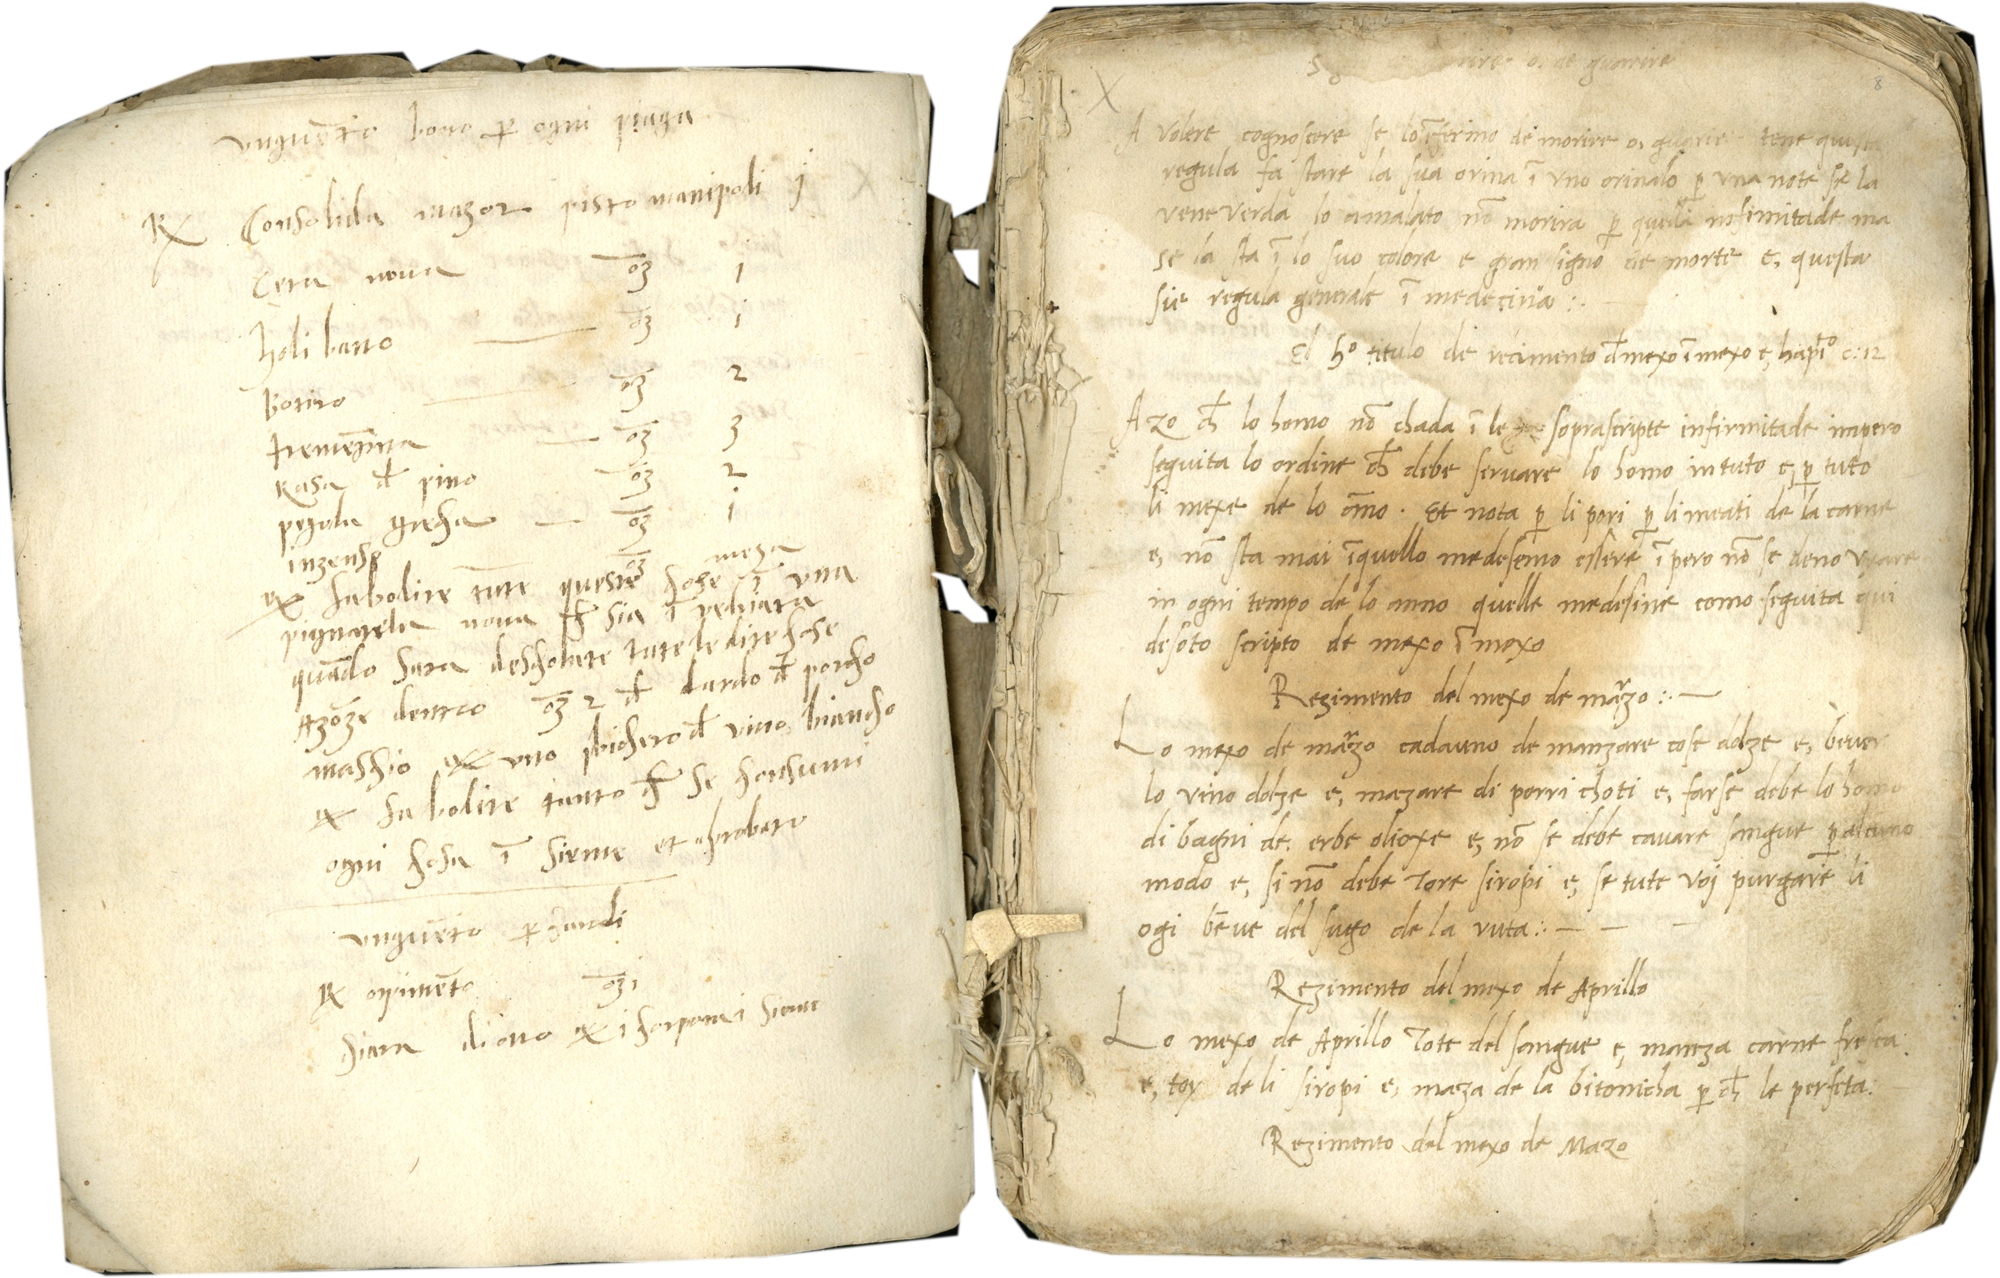 unguēto bono p ogni piaga
Rx Consolida mazor pisto manipoli j
Cera nova oȝ 1
holibano oȝ 1
botiro oȝ 2
tremētina oȝ 3
Rasa d pino oȝ 2
pegola grecha oȝ 1
inzenso oȝ meza
et fa bolire tute queste chose ī una
pignatela nova ch sia ī vetriata
quādo sara descholate tute le dite chose
azōze dentro oȝ 2 d lardo d porcho
maschio et uno bichero d vino biancho
et fa bolire tanto ch se consumi
ogni chosa ī sieme et probato
unguēto p
Rx orpimēto oȝ 1
chiara di ovo et i
de guarire
8
A volere cognoscere se lo īfermo de morire o, guarire tene questa
regula fa stare la sua orina ī uno orinalo p una note se la
vene verda lo amalato nō morira p quella infirmitade ma
se la sta ī lo suo colore e gran signo de morte e, questa
sie regula generale ī medecina :.
El hº titulo de recimento d mexo ī mexo e, c: 12
Azo ch lo homo nō chada ī le soprascripte infirmitade impero
seguita lo ordine ch debe servare lo homo in tuto e, p tutto
li mexe de lo āno . Et nota p li pori p li meati de la carne
e, nō sta mai ī quello medesemo essere ī pero nō se deno uxare
in ogni tempo de lo anno quelle medesine como seguita qui
desoto scripto de mexo ī mexo
Rezimento del mexo de marzo :.
Lo mexo de marzo cadauno de manzare cose dolze e, bever
lo vino dolze e, mazare di porri choti e, farse debe lo homo
di bagni de erbe olioxe e, nō se debe cavare sangue p alcuno
modo e, si nō debe tore siropi e, se tute voi purgare li
ogi beve del sugo de la ruta :.
Rezimento del mexo de Aprillo
Lo mexo de Aprillo tote del sangue e, manza carne fresca
e, toy de li siropi e, maza de la bitonicha p ch le perfeta :
Rezimento del mexo de Mazo